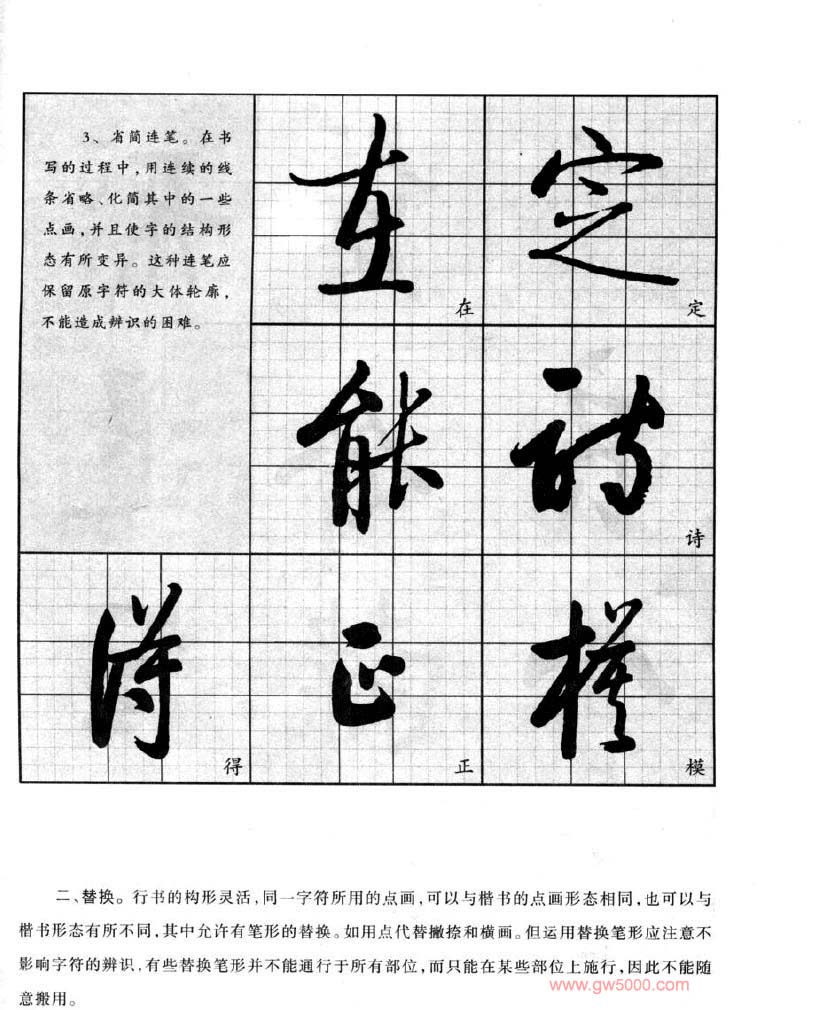 3、省简连笔。在书
写的过程中，用连续的线
条省略、化简其中的一些
点画，并且使字的结构形
态有所变异。这种连笔应
保留原字符的大体轮廓，
不能造成辨识的困难。
在 定
在 定
能 诗
诗
得 正 模
得 正 模
二、替换。行书的构形灵活，同一字符所用的点画，可以与楷书的点画形态相同，也可以与
楷书形态有所不同，其中允许有笔形的替换。如用点代替撇捺和横画。但运用替换笔形应注意不
影响字符的辨识，有些替换笔形并不能通行于所有部位，而只能在某些部位上施行，因此不能随
意搬用。
www.gw5000.com